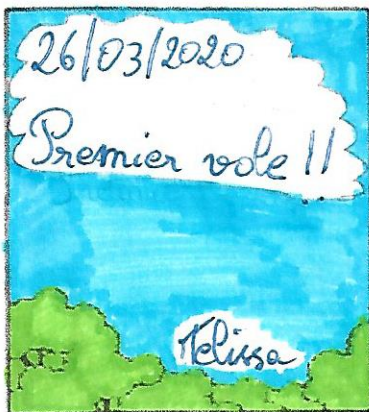 26/03/2020
Premier vole !!
Melissa